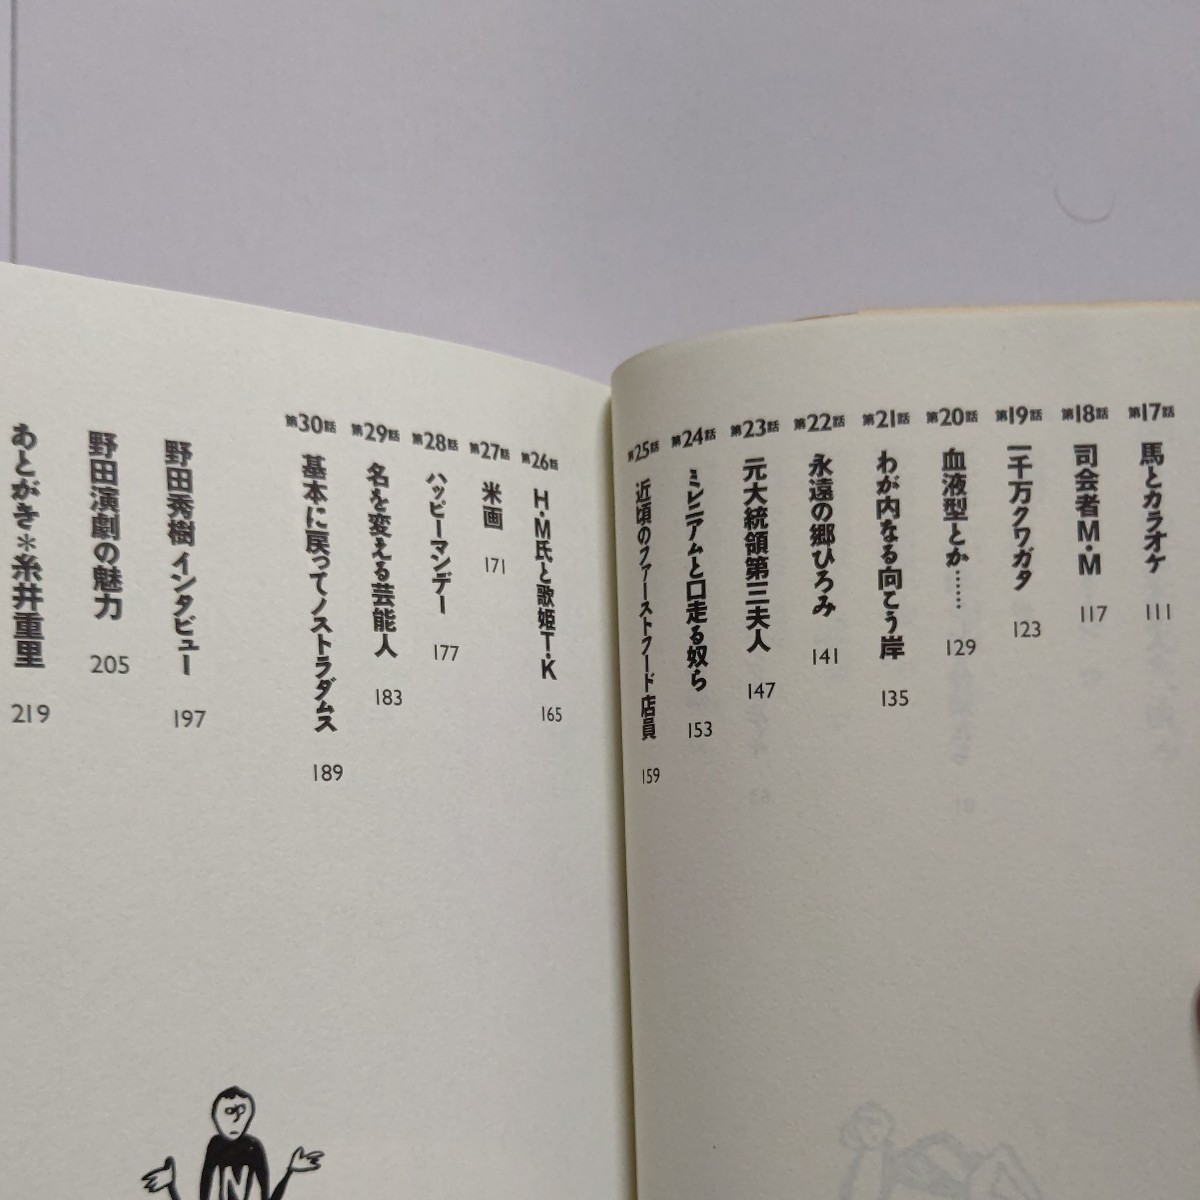 第17話 馬とカラオケ 111
第18話 司会者M・M 117
第19話 一千万クワガタ 123
第20話 血液型とか…… 129
第21話 わが内なる向こう岸 135
第22話 永遠の郷ひろみ 141
第23話 元大統領第三夫人 147
第24話 ミレニアムと口走る奴ら 153
第25話 近頃のファーストフード店員 159
第26話 H・M氏と歌姫T・K 165
第27話 米画 171
第28話 ハッピーマンデー 177
第29話 名を変える芸能人 183
第30話 基本に戻ってノストラダムス 189
野田秀樹インタビュー 197
野田演劇の魅力 205
あとがき＊糸井重里 219
N